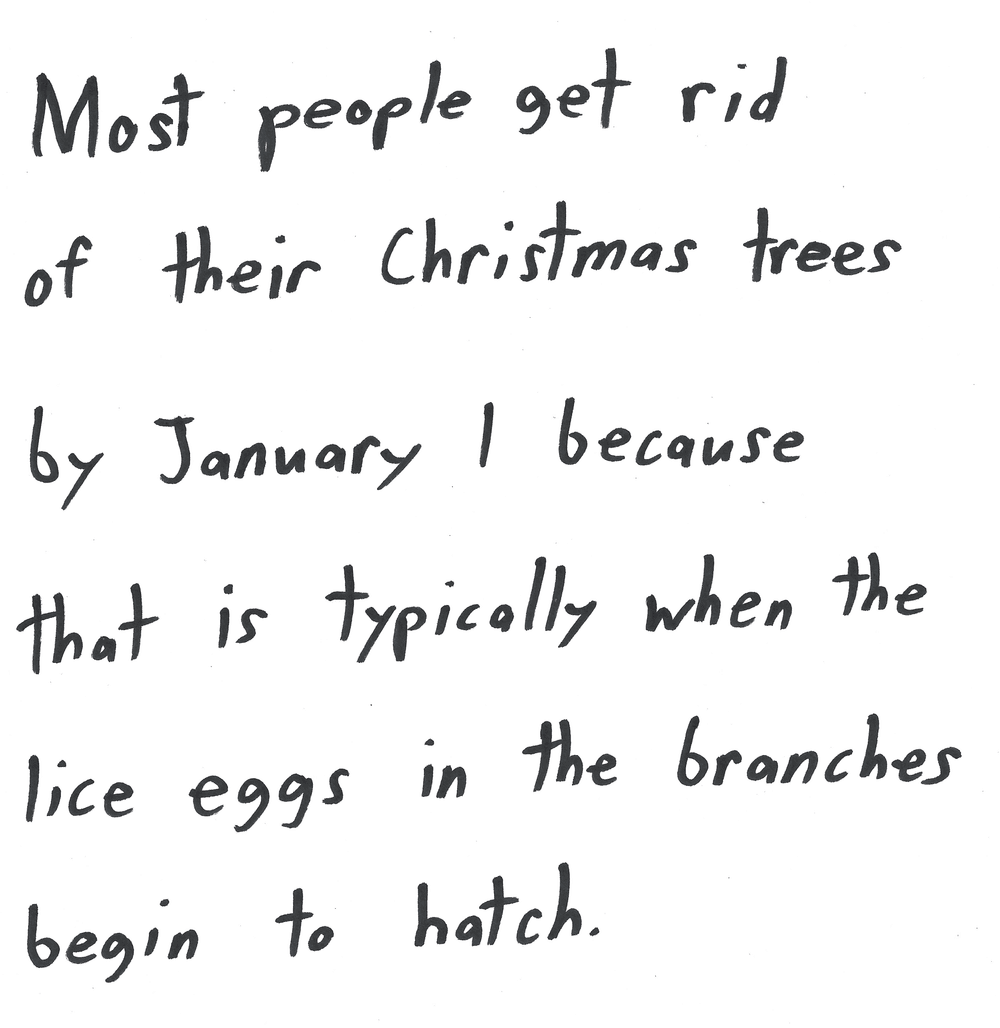 Most people get rid
of their Christmas trees
by January 1 because
that is typically when the
lice eggs in the branches
begin to hatch.